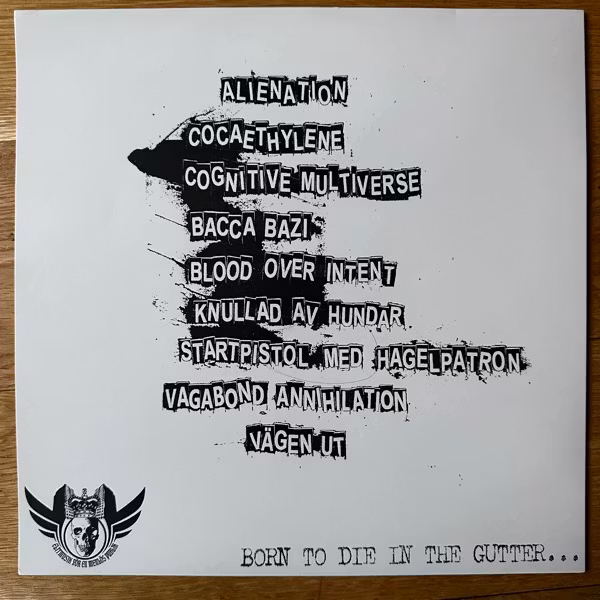 ALIENATION
COCAETHYLENE
COGNITIVE MULTIVERSE
BACCA BAZI
BLOOD OVER INTENT
KNULLAD AV HUNDAR
STARTPISTOL MED HAGELPATRON
VAGABOND ANNIHILATION
VÄGEN UT
BORN TO DIE IN THE GUTTER...